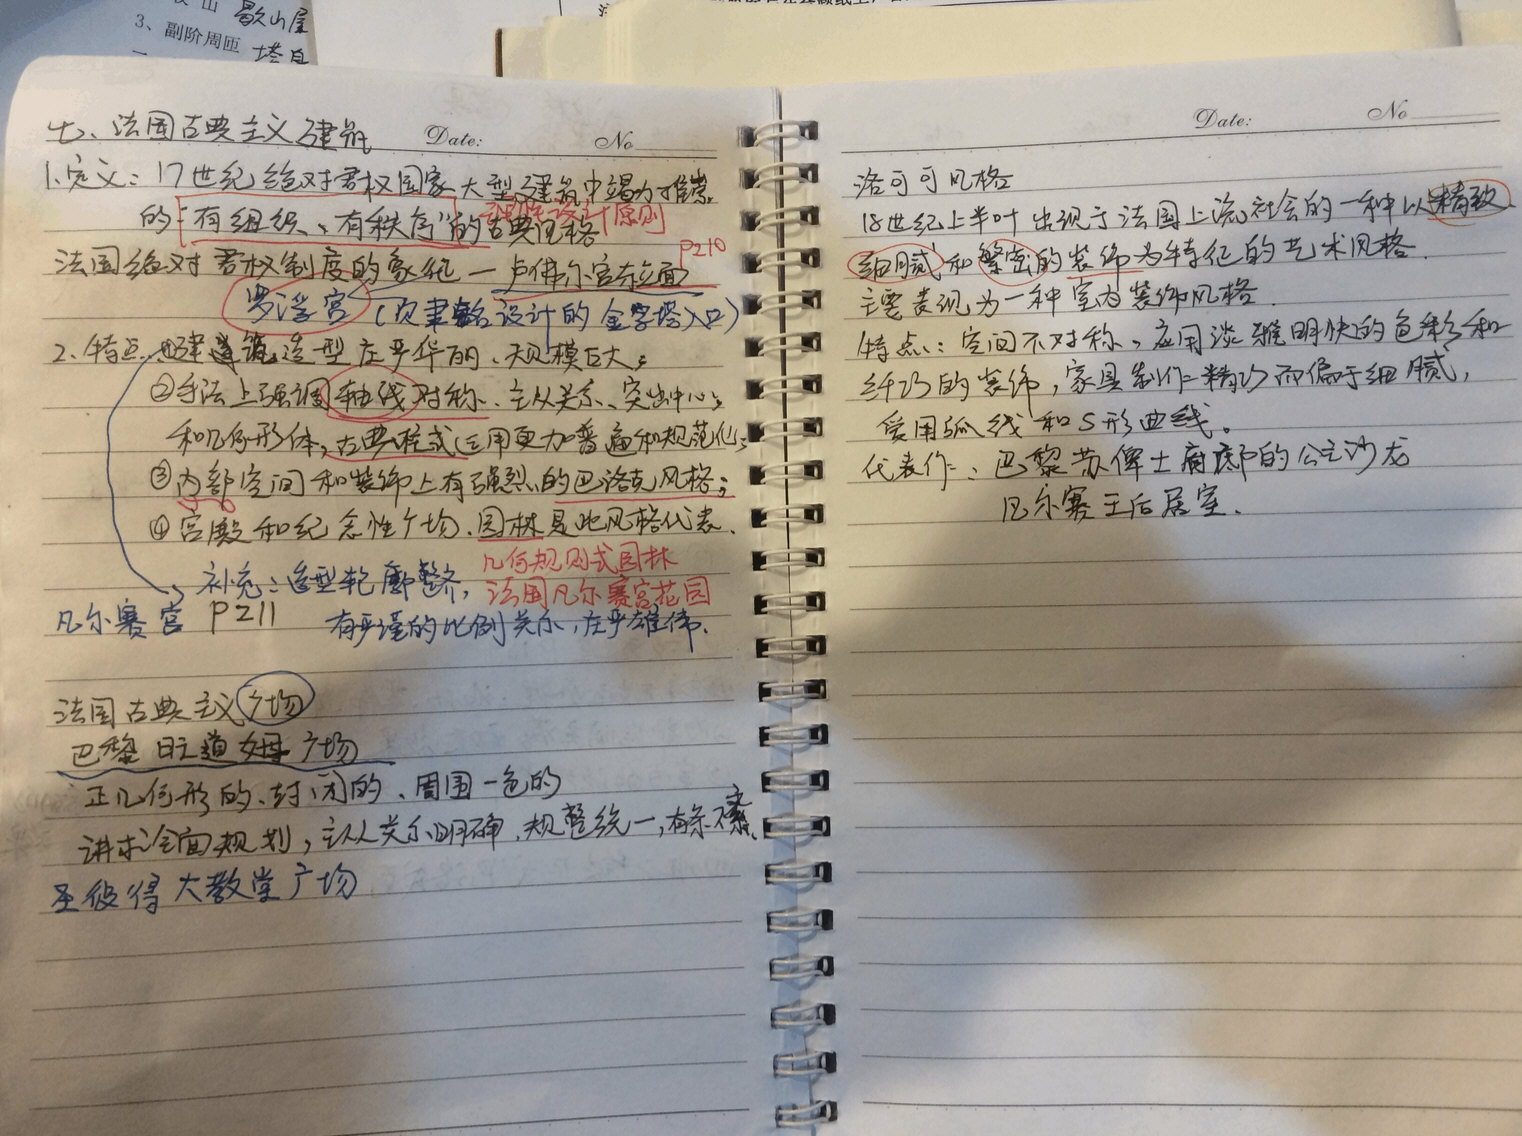 山 歇山屋
3、副阶周匝 塔身
七、法国古典主义建筑
Date:
No
1.定义：17世纪绝对君权国家大型建筑中竭力推崇
的“有组织、有秩序”的古典风格
设计原则
P210
法国绝对君权制度的象征—卢佛尔宫东立面
罗浮宫（贝聿铭设计的金字塔入口）
2.特点：①建筑造型庄严华丽、规模巨大；
②手法上强调轴线对称、主从关系、突出中心；
和几何形体，古典柱式运用更加普遍和规范化；
③内部空间和装饰上有强烈的巴洛克风格；
④宫殿和纪念性广场、园林是此风格代表.
几何规则式园林
法国凡尔赛宫花园
补充：造型轮廓整齐，
有严谨的比例关系，庄严雄伟.
凡尔赛宫 P211
法国古典主义广场
巴黎旺道姆广场
正几何形的、封闭的、周围一色的
讲求全面规划，主从关系明确、规整统一，有条不紊、
圣彼得大教堂广场
Date:
No
洛可可风格
18世纪上半叶出现于法国上流社会的一种以精致、
细腻和繁密的装饰为特征的艺术风格.
主要表现为一种室内装饰风格.
特点：空间不对称、应用淡雅明快的色彩和
纤巧的装饰，家具制作精巧而偏于细腻，
爱用弧线和S形曲线。
代表作：巴黎苏俾士府邸的公主沙龙
凡尔赛王后居室.